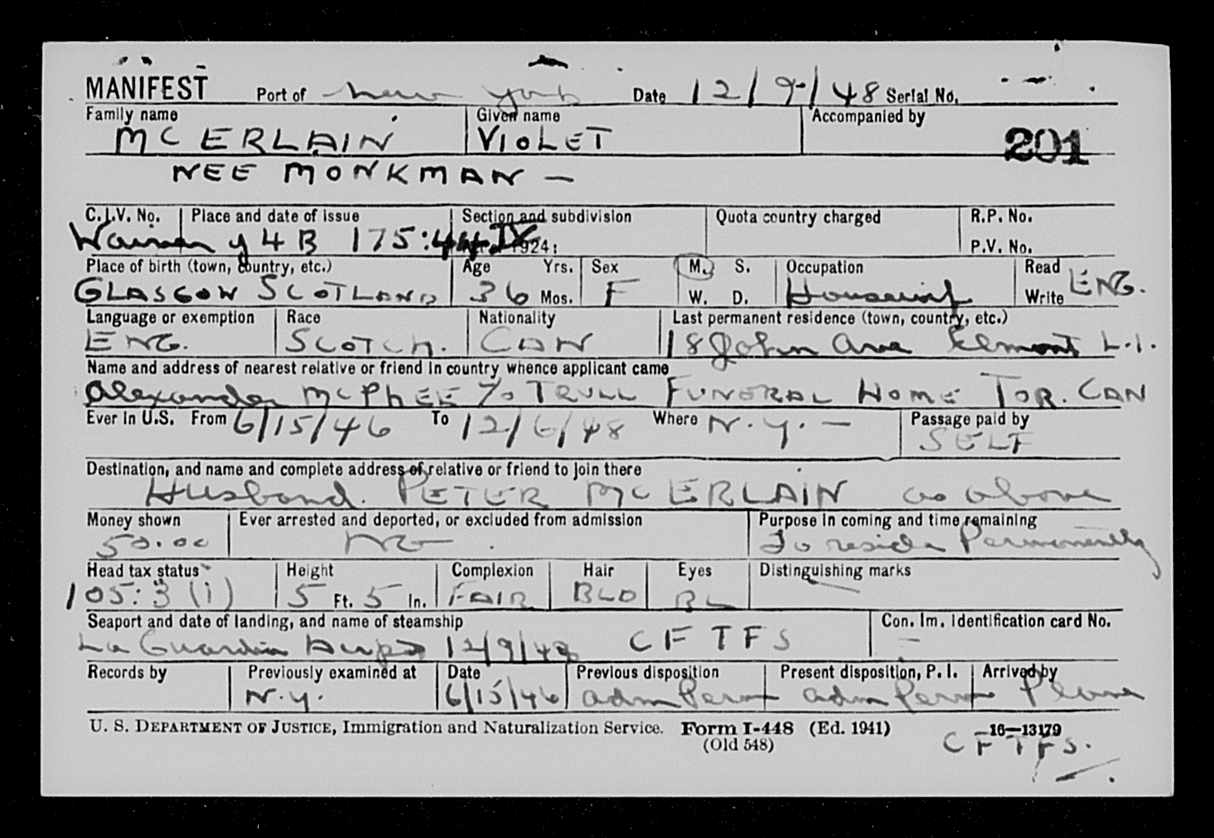 MANIFEST Port of New York Date 12/9/48 Serial No.
Family name Given name Accompanied by
MC ERLAIN VIOLET 201
NEE MONKMAN —
C.I.V. No. Place and date of issue Section and subdivision Quota country charged R.P. No.
4 B 175:44 1924: P.V. No.
Place of birth (town, country, etc.) Age Yrs. Sex M. S. Occupation Read
GLASGOW SCOTLAND 36 Mos. F W. D. Housewife Write ENG.
Language or exemption Race Nationality Last permanent residence (town, country, etc.)
ENG. SCOTCH. CAN 18 John Ave Elmont L.I.
Name and address of nearest relative or friend in country whence applicant came
Alexander McPHEE % TRULL FUNERAL HOME TOR. CAN
Ever in U.S. From 6/15/46 To 12/6/48 Where N.Y. — Passage paid by
SELF
Destination, and name and complete address of relative or friend to join there
Husband. PETER MC ERLAIN as above
Money shown Ever arrested and deported, or excluded from admission Purpose in coming and time remaining
50.00 NO To reside Permanently
Head tax status Height Complexion Hair Eyes Distinguishing marks
105:3 (1) 5 Ft. 5 In. FAIR BLD BL —
Seaport and date of landing, and name of steamship Con. Im. Identification card No.
La Guardia Airpt 12/9/48 C F T F S —
Records by Previously examined at Date Previous disposition Present disposition, P. I. Arrived by
N.Y. 6/15/46 adm Perm adm Perm Plane
U. S. DEPARTMENT OF JUSTICE, Immigration and Naturalization Service. Form I-448 (Ed. 1941) 16—13179
(Old 548) C F T F S.